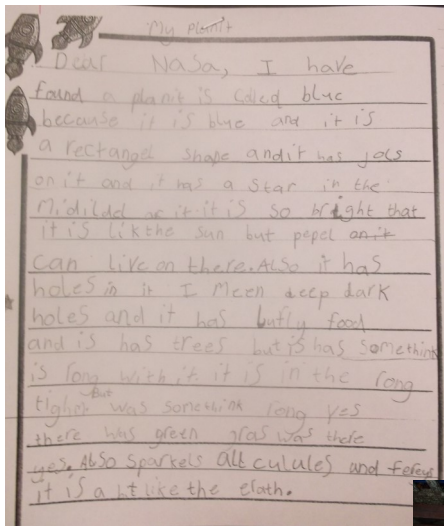 My planit
Dear Nasa, I have
found a planit is Called blue
because it is blue and it is
a rectangel shape and it has jols
on it and it has a star in the
Midildel of it. it is so bright that
it is lik the sun but pepel on it
can live on there. Also it has
holes in it I Meen deep dark
holes and it has food
and is has trees but is has somethink
is rong with it. it is in the rong
But
was somethink rong yes
there was green gras was there
yes. Also sparkels all culules and
it is a like the erath.